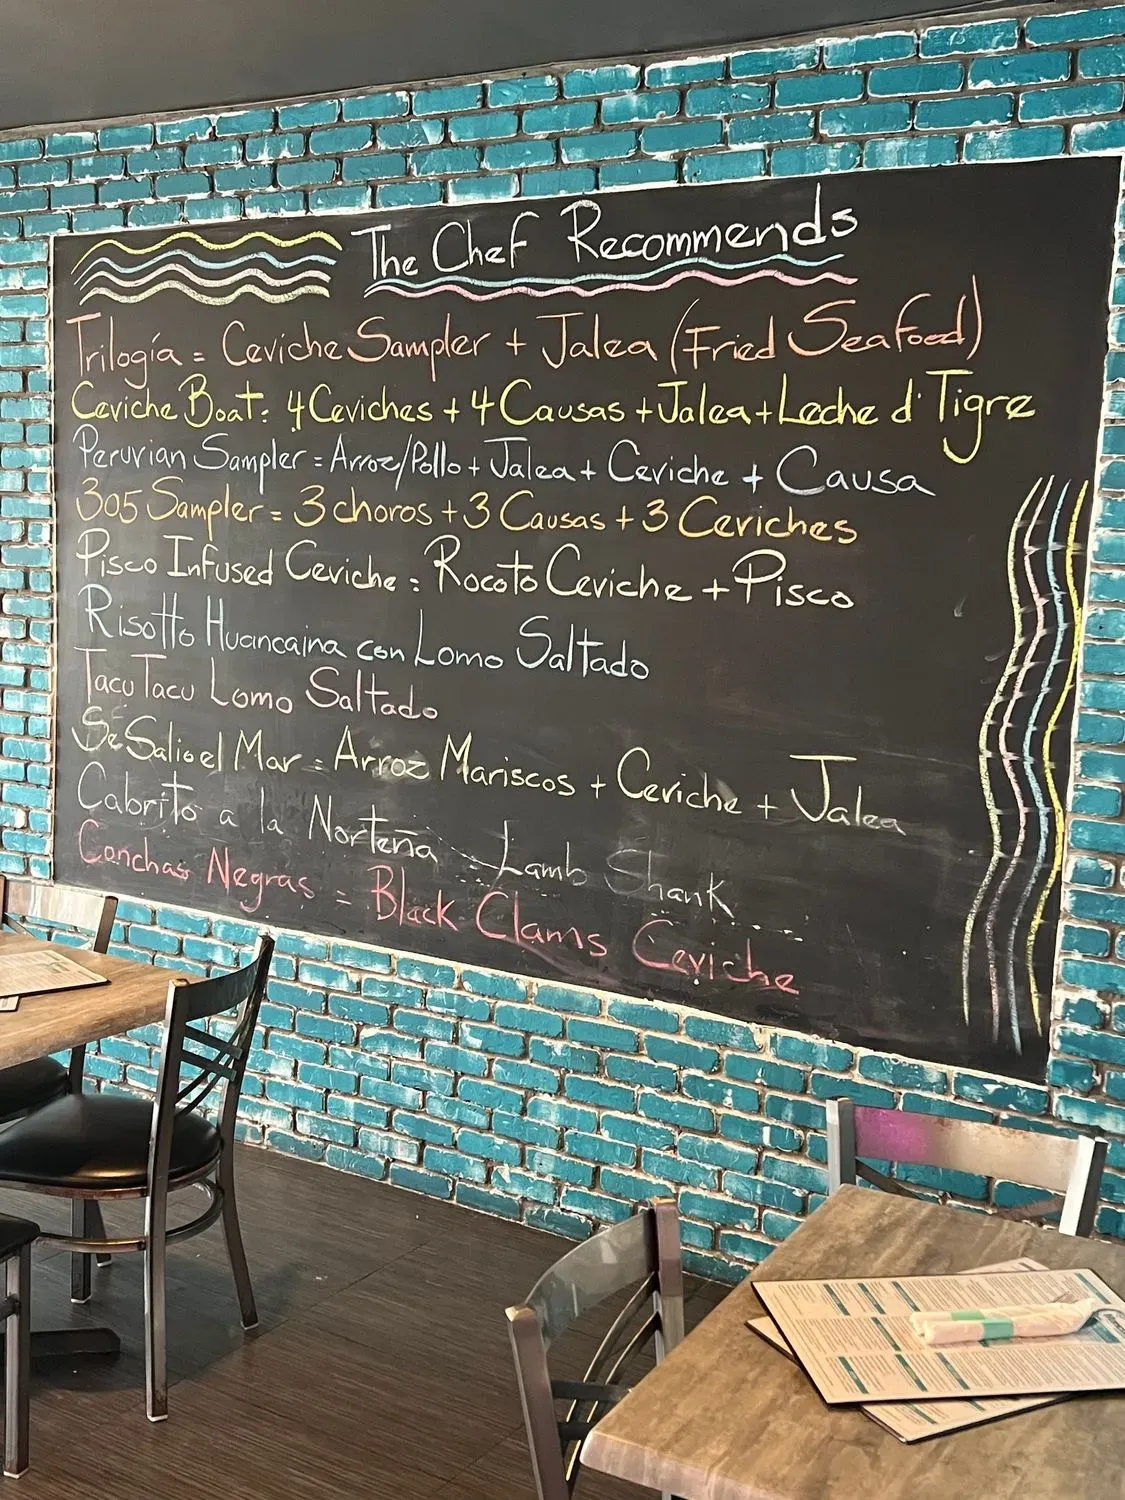 The Chef Recommends
Trilogía = Ceviche Sampler + Jalea (Fried Seafood)
Ceviche Boat: 4 Ceviches + 4 Causas + Jalea + Leche d' Tigre
Peruvian Sampler = Arroz/Pollo + Jalea + Ceviche + Causa
305 Sampler = 3 choros + 3 Causas + 3 Ceviches
Pisco Infused Ceviche = Rocoto Ceviche + Pisco
Risotto Huancaina con Lomo Saltado
Tacu Tacu Lomo Saltado
Se Salio el Mar = Arroz Mariscos + Ceviche + Jalea
Cabrito a la Norteña - Lamb Shank
Conchas Negras = Black Clams Ceviche